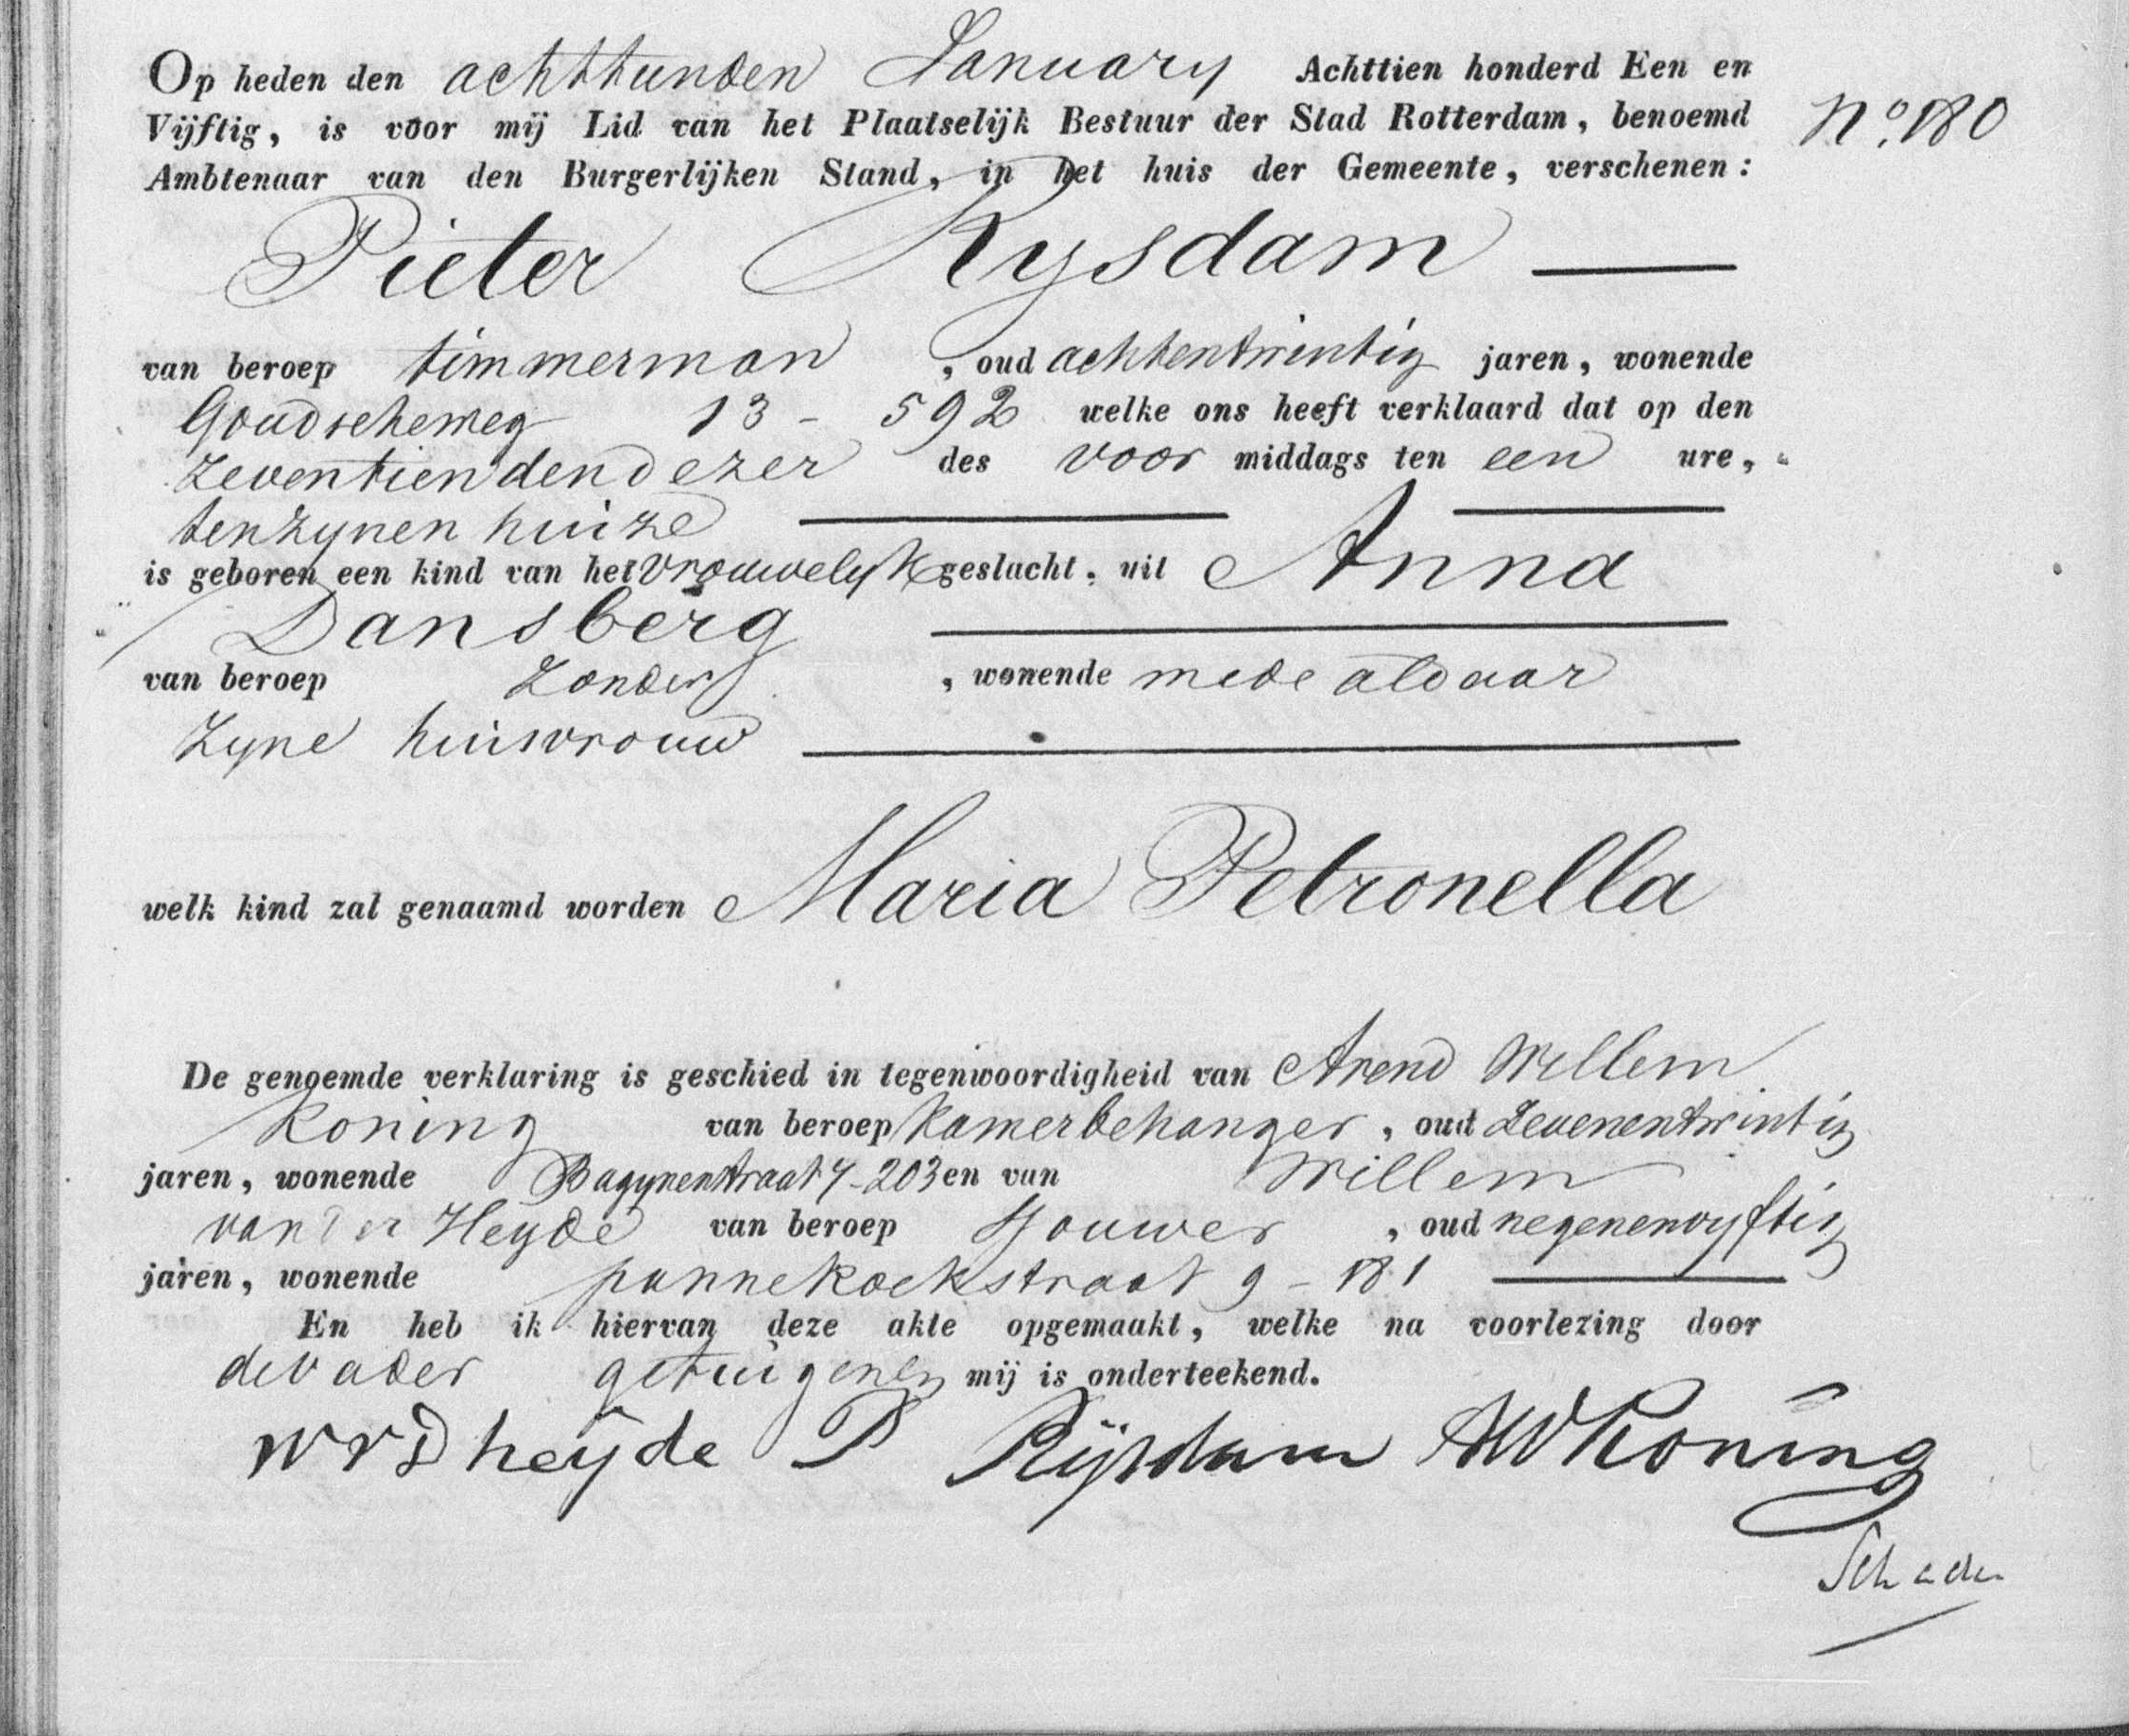 Op heden den achttienden January Achttien honderd Een en
Vijftig, is voor mij Lid van het Plaatselijk Bestuur der Stad Rotterdam, benoemd
N.º 180
Ambtenaar van den Burgerlijken Stand, in het huis der Gemeente, verschenen:
Pieter Rysdam
van beroep timmerman, oud achtentwintig jaren, wonende
Goudscheweg 13 - 592 welke ons heeft verklaard dat op den
zeventienden dezer des voor middags ten een ure,
ten zynen huize
is geboren een kind van het vrouwelyk geslacht, uit Anna
Dansberg
van beroep zonder, wonende mede aldaar
zyne huisvrouw
welk kind zal genaamd worden Maria Petronella
De genoemde verklaring is geschied in tegenwoordigheid van Arend Willem
Koning van beroep Kamerbehanger, oud Zevenentwintig
jaren, wonende Bagynenstraat 7-203 en van Willem
van der Heyde van beroep Sjouwer, oud negenenvyftig
jaren, wonende pannekoekstraat 9 - 181
En heb ik hiervan deze akte opgemaakt, welke na voorlezing door
de vader getuigen en mij is onderteekend.
W v D heyde P Rijsdam AW Koning